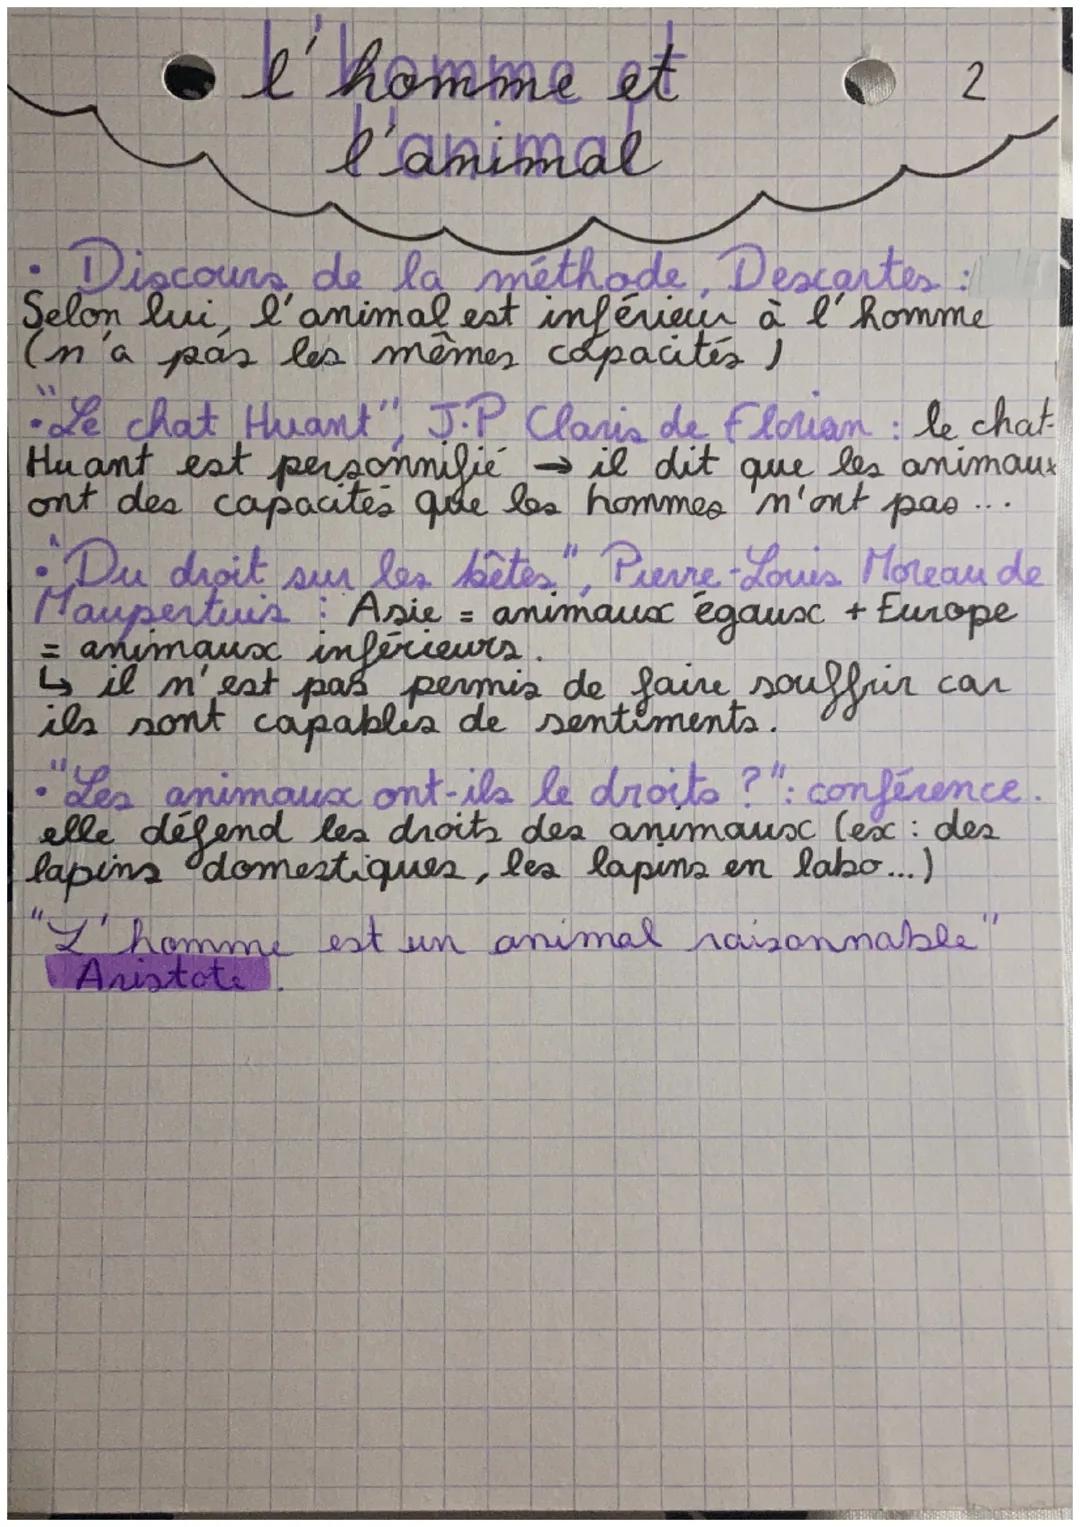 l'homme et
2
l'animal
• Discours de la méthode, Descartes :
Selon lui, l'animal est inférieur à l'homme
(n'a pas les mêmes capacités)
• "Le chat Huant", J.P Claris de Florian : le chat-
Huant est personnifié → il dit que les animaux
ont des capacités que les hommes n'ont pas...
• "Du droit sur les bêtes", Pierre-Louis Moreau de
Maupertuis : Asie = animaux égaux + Europe
= animaux inférieurs.
↳ il n'est pas permis de faire souffrir car
ils sont capables de sentiments.
• "Les animaux ont-ils le droits ?" : conférence.
elle défend les droits des animaux (ex : des
lapins domestiques, les lapins en labo...)
"L'homme est un animal raisonnable"
Aristote.